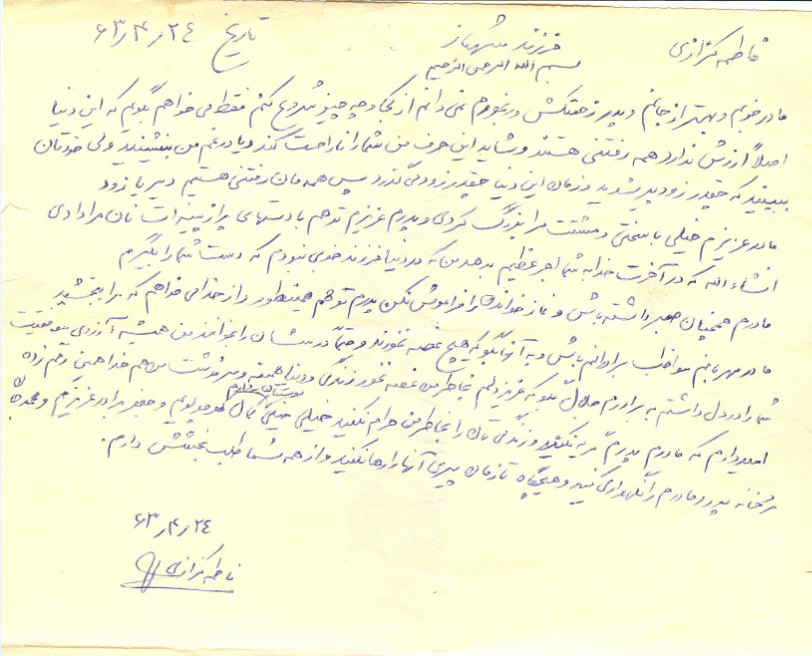 فاطمه کزازی فرزند شهباز تاریخ ۶۳٫۴٫۲۴
بسم الله الرحمن الرحیم
مادر خوبم و بهتر از جانم و پدر زحمتکش و رنجورم نمی دانم از کجا و چه چیز شروع کنم فقط می خواهم بگویم که این دنیا
اصلاً ارزش ندارد همه رفتنی هستند و شاید این حرف من شما را ناراحت کند و یا در غم من بنشینید ولی خودتان
ببینید که چقدر زود پیر شدید و زمان این دنیا چقدر زود می گذرد پس همه مان رفتنی هستیم دیر یا زود
مادر عزیزم خیلی با سختی و مشقت مرا بزرگ کردی و پدرم عزیزم تو هم با دستهای پر از پینه ات نان مرا دادی
انشاء الله که در آخرت خدا به شما اجر عظیم بدهد من که در دنیا فرزند خوبی نبودم که دست شما را بگیرم
مادرم همچنان صبر داشته باش و نماز خواندن را فراموش نکن پدرم تو هم همینطور و از خدا می خواهم که مرا ببخشید
مادر مهربانم مواظب برادرانم باش و به آنها بگو که هیچ غصه نخورند و حتماً درسشان را بخوانند من همیشه آرزوی موفقیت
شما را در دل داشتم به برادرم جلال بگو که عزیز دلم بخاطر من غصه نخور زندگی و دنیا همینه و سرنوشت من هم خدا همین رقم زده
امیدوارم که مادرم پدرم گریه نکنید و زندگی تان را بخاطر من حرام نکنید خیلی خیلی دوستتان دارم کمال و جعفر برادر عزیزم
پدر و مادرم را نگهداری کنید و هیچگاه تا زمان پیری آنها را رها نکنید و از همه شما طلب بخشش دارم.
۶۳٫۴٫۲۴
فاطمه کزازی